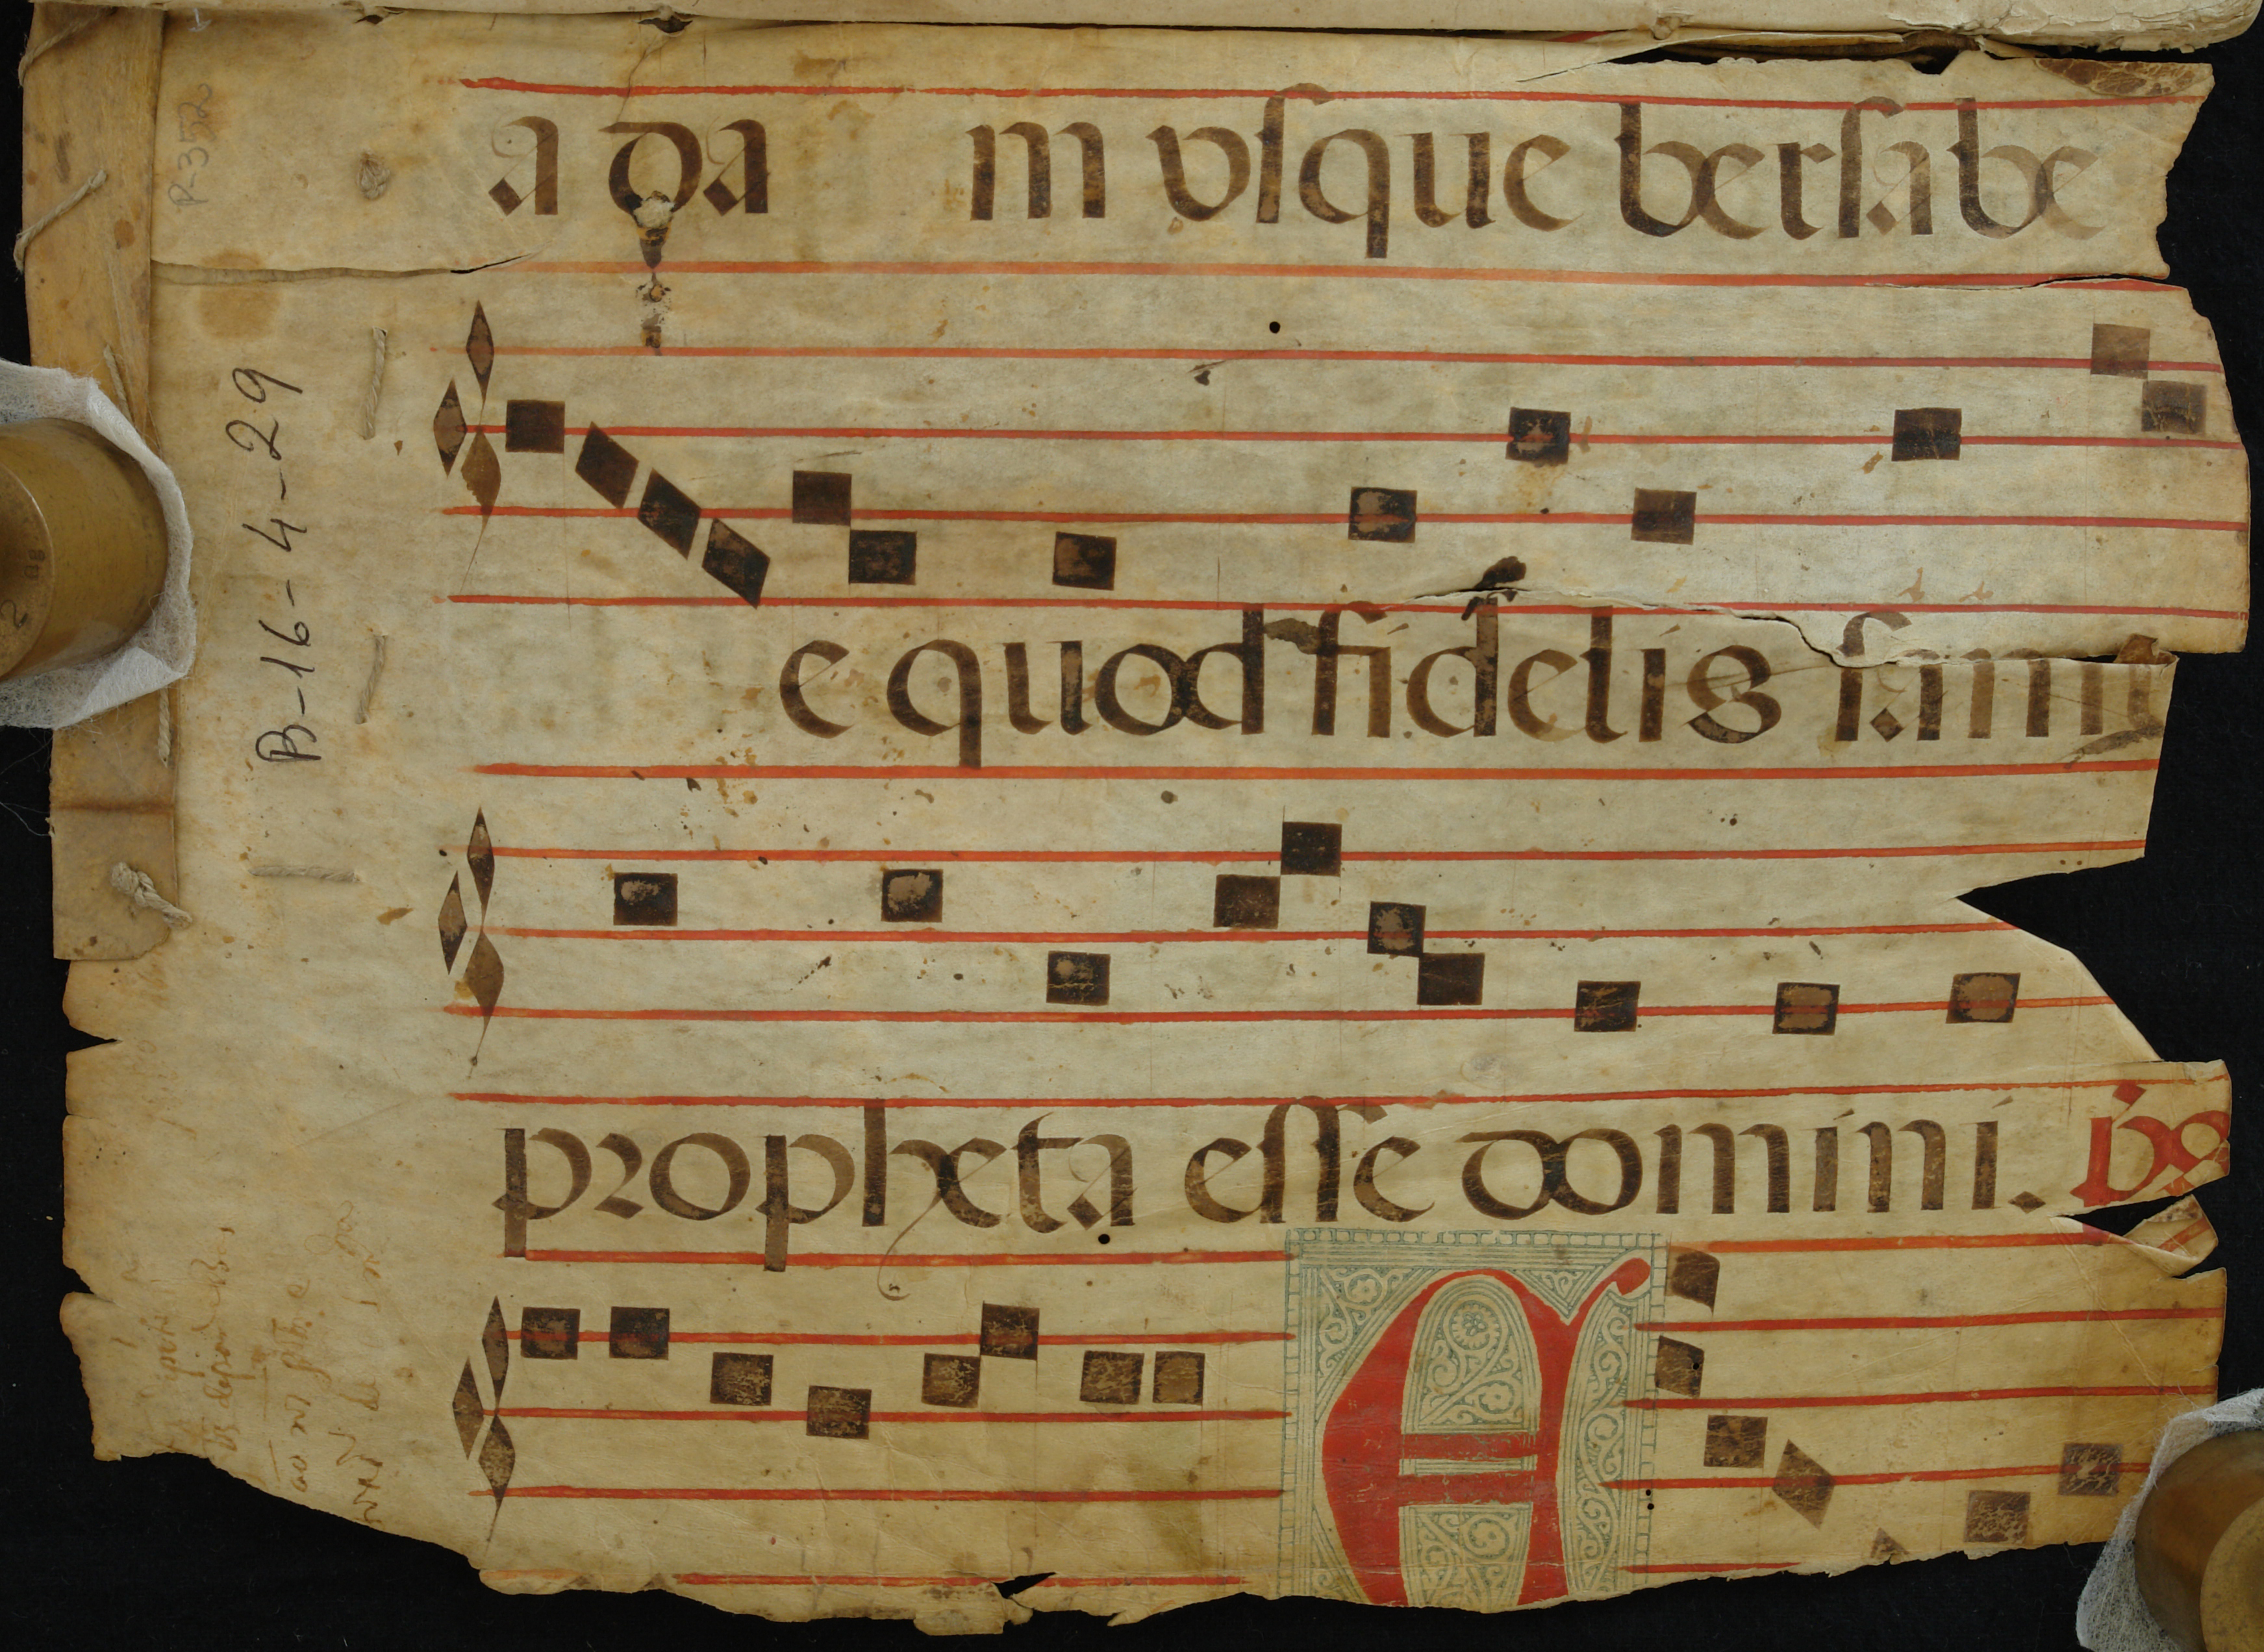 a da m vsque bersabe
e quod fidelis samu
propheta esse domini. ps
A
B-16-4-29
P-352